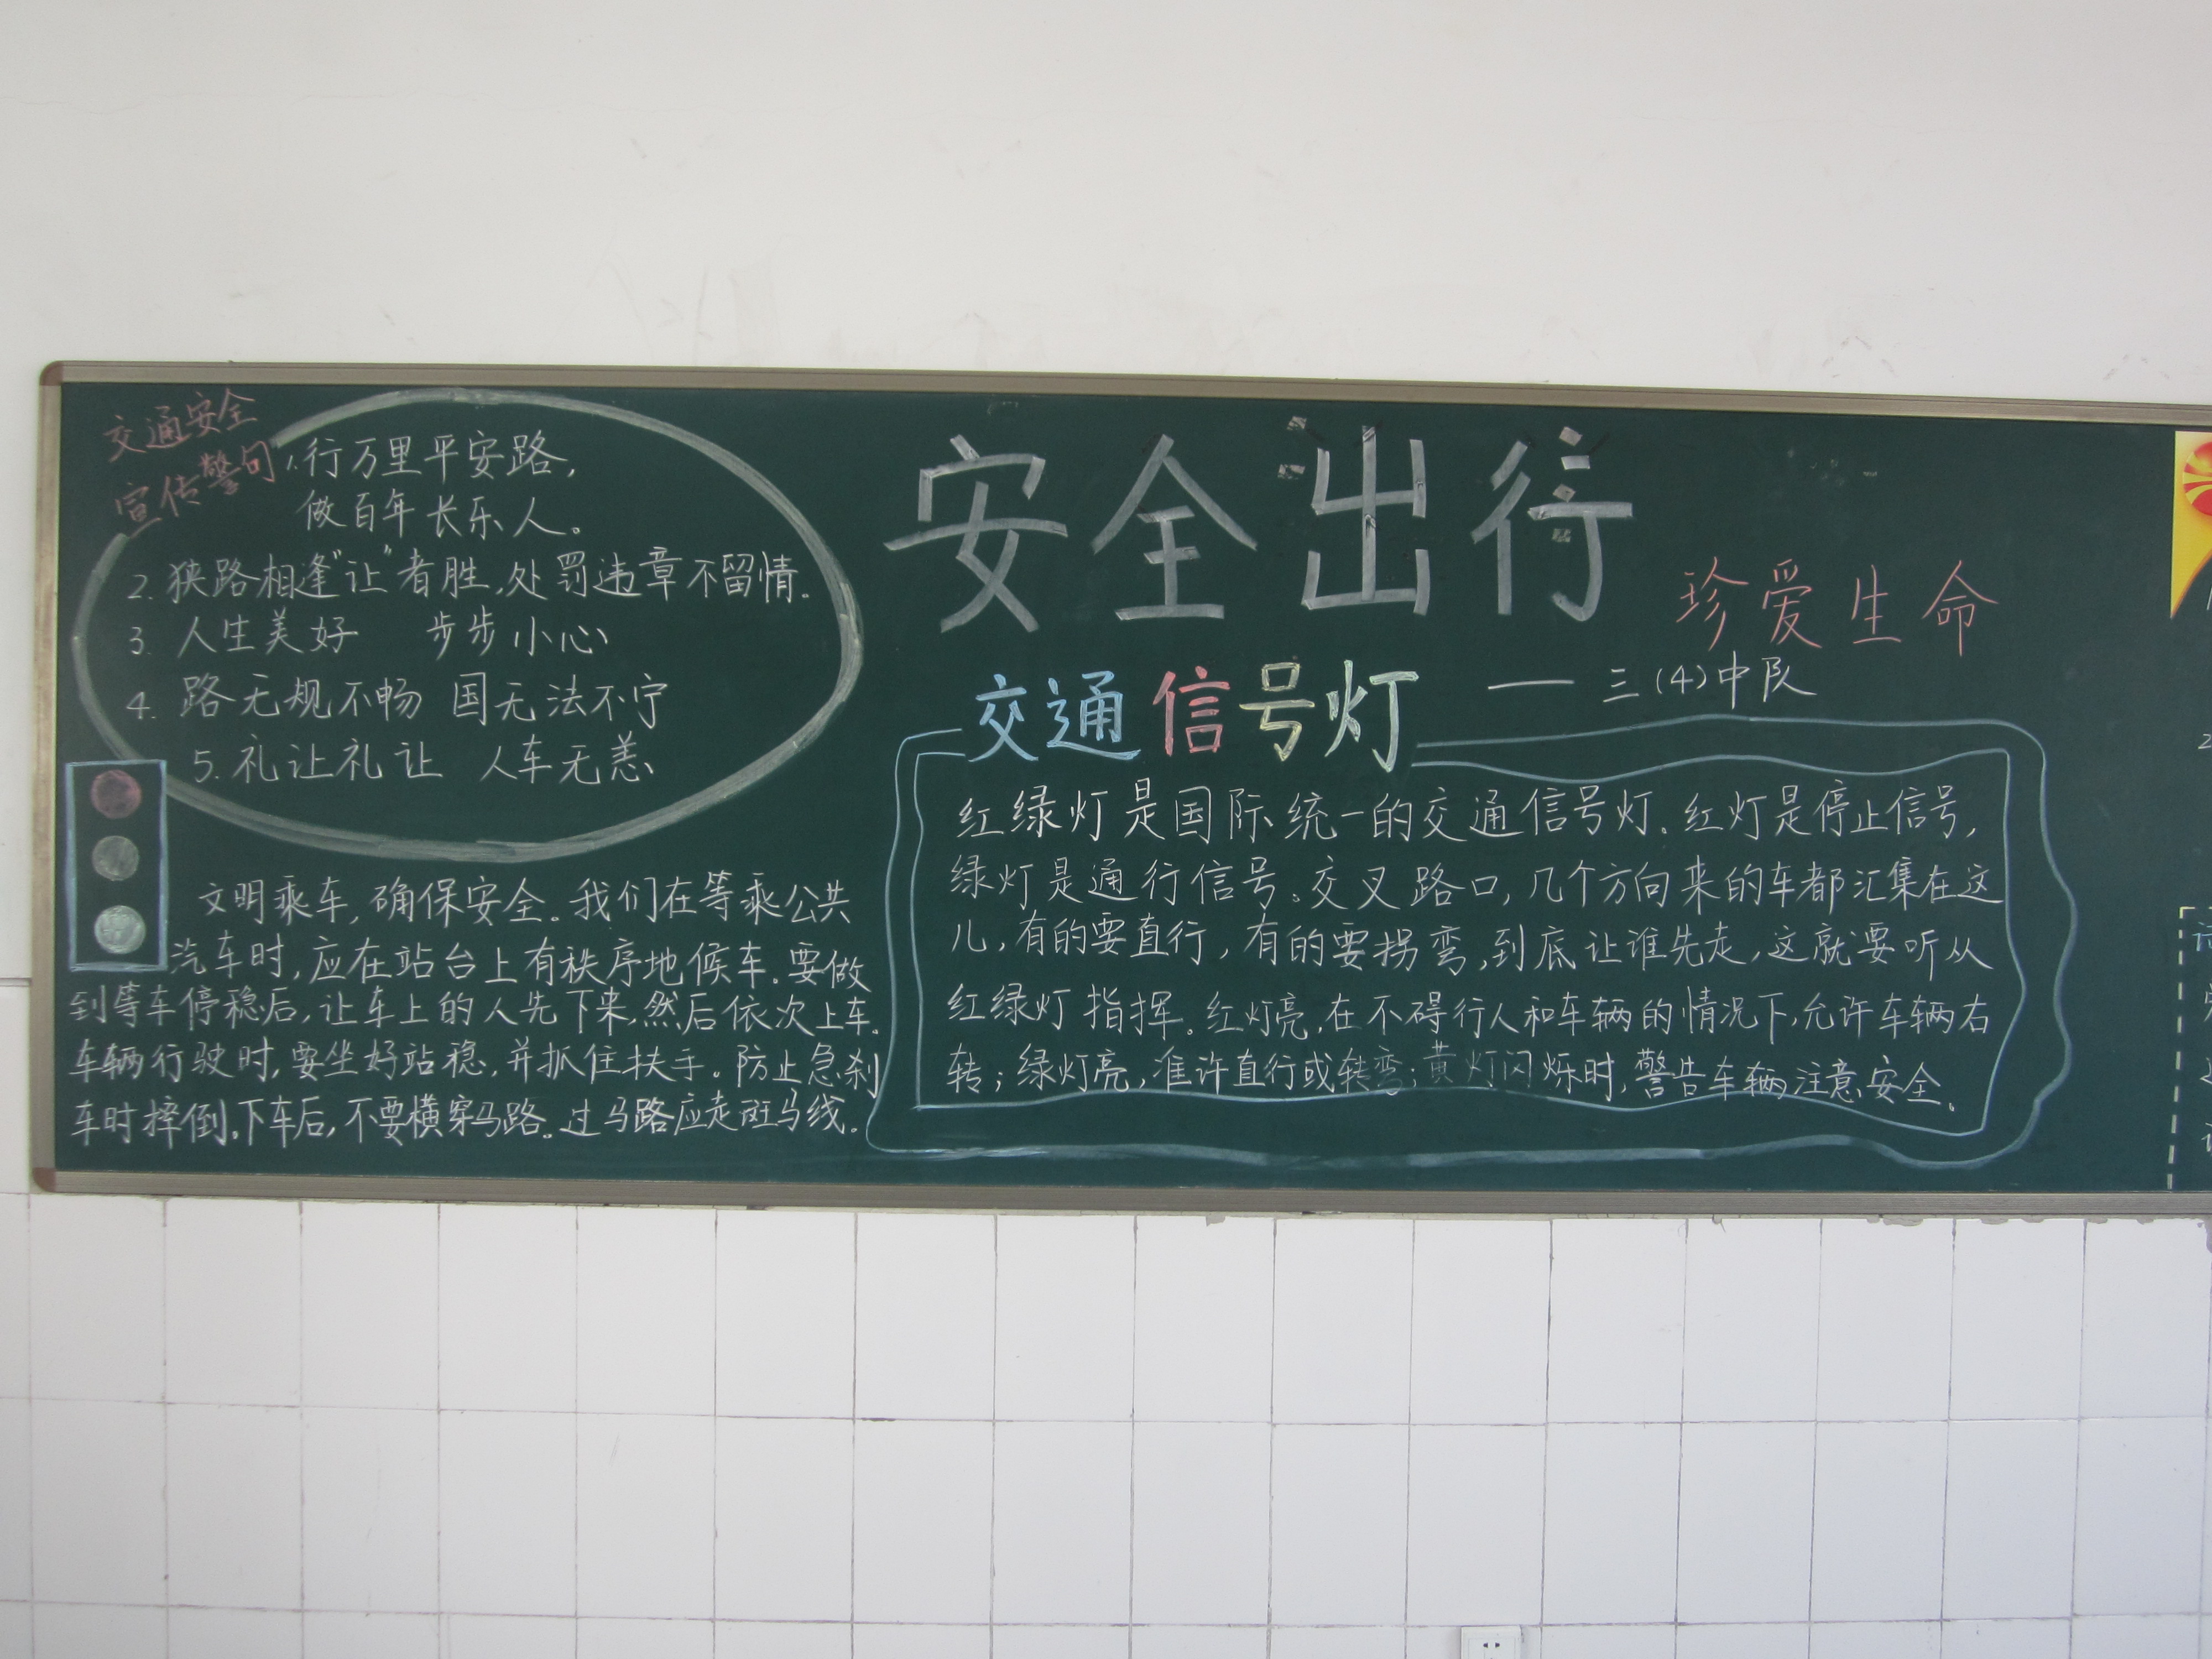 交通安全
宣传警句
1.行万里平安路,
做百年长乐人。
2.狭路相逢"让"者胜,处罚违章不留情。
3.人生美好 步步小心
4.路无规不畅 国无法不宁
5.礼让礼让 人车无恙
文明乘车,确保安全。我们在等乘公共
汽车时,应在站台上有秩序地候车。要做
到等车停稳后,让车上的人先下来,然后依次上车.
车辆行驶时,要坐好站稳,并抓住扶手。防止急刹
车时摔倒。下车后,不要横穿马路。过马路应走斑马线。
安全出行
珍爱生命
——三(4)中队
交通信号灯
红绿灯是国际统一的交通信号灯。红灯是停止信号,
绿灯是通行信号。交叉路口,几个方向来的车都汇集在这
儿,有的要直行,有的要拐弯,到底让谁先走,这就要听从
红绿灯指挥。红灯亮,在不碍行人和车辆的情况下,允许车辆右
转;绿灯亮,准许直行或转弯;黄灯闪烁时,警告车辆注意安全。